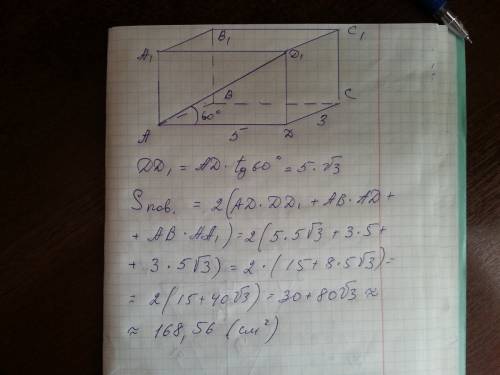 B₁ C₁
A₁ D₁
B C
60°
A 5 D 3
DD₁ = AD · tg 60° = 5 · √3
Sпов. = 2(AD · DD₁ + AB · AD +
+ AB · AA₁) = 2(5 · 5√3 + 3 · 5 +
+ 3 · 5√3) = 2 · (15 + 8 · 5√3) =
= 2(15 + 40√3) = 30 + 80√3 ≈
≈ 168,56 (см²)